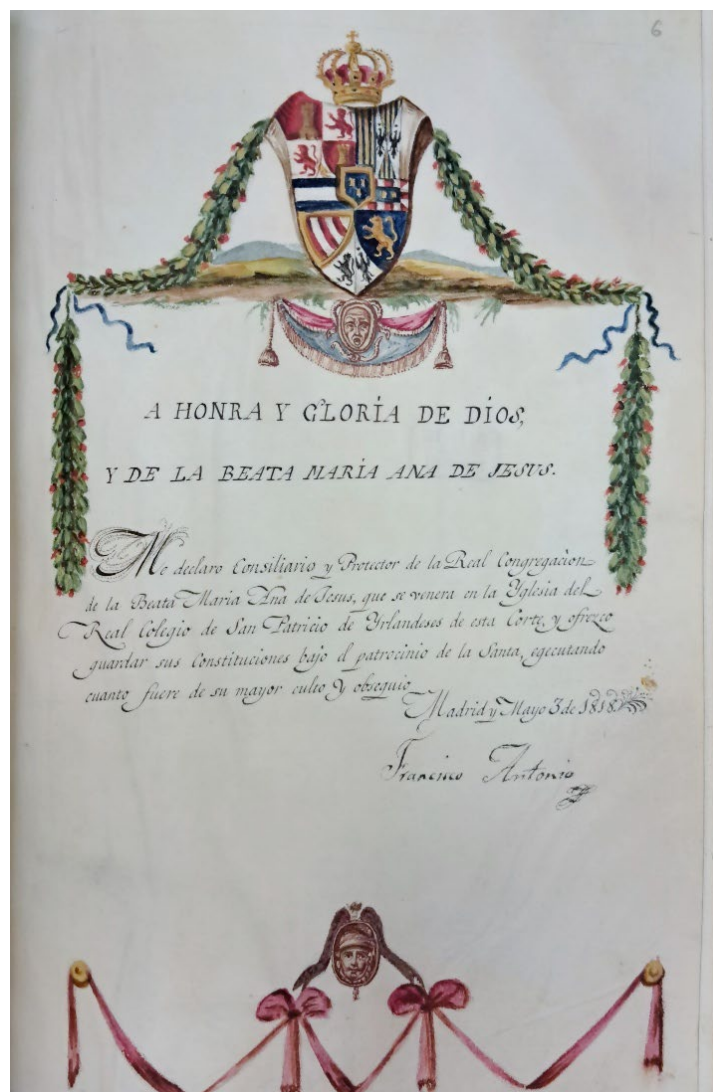 6
A HONRA Y GLORÍA DE DÍOS,
Y DE LA BEATA MARÍA ANA DE JESUS.
Me declaro Consiliario y Protector de la Real Congregacion
de la Beata Maria Ana de Jesus, que se venera en la Yglesia del
Real Colegio de San Patricio de Yrlandeses de esta Corte, y ofrezco
guardar sus Constituciones bajo el patrocinio de la Santa, egecutando
cuanto fuere de su mayor culto y obsequio
Madrid y Mayo 3 de 1818
Francisco Antonio